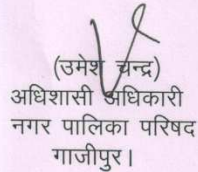 (उमेश चन्द्र)
अधिशासी अधिकारी
नगर पालिका परिषद
गाजीपुर।